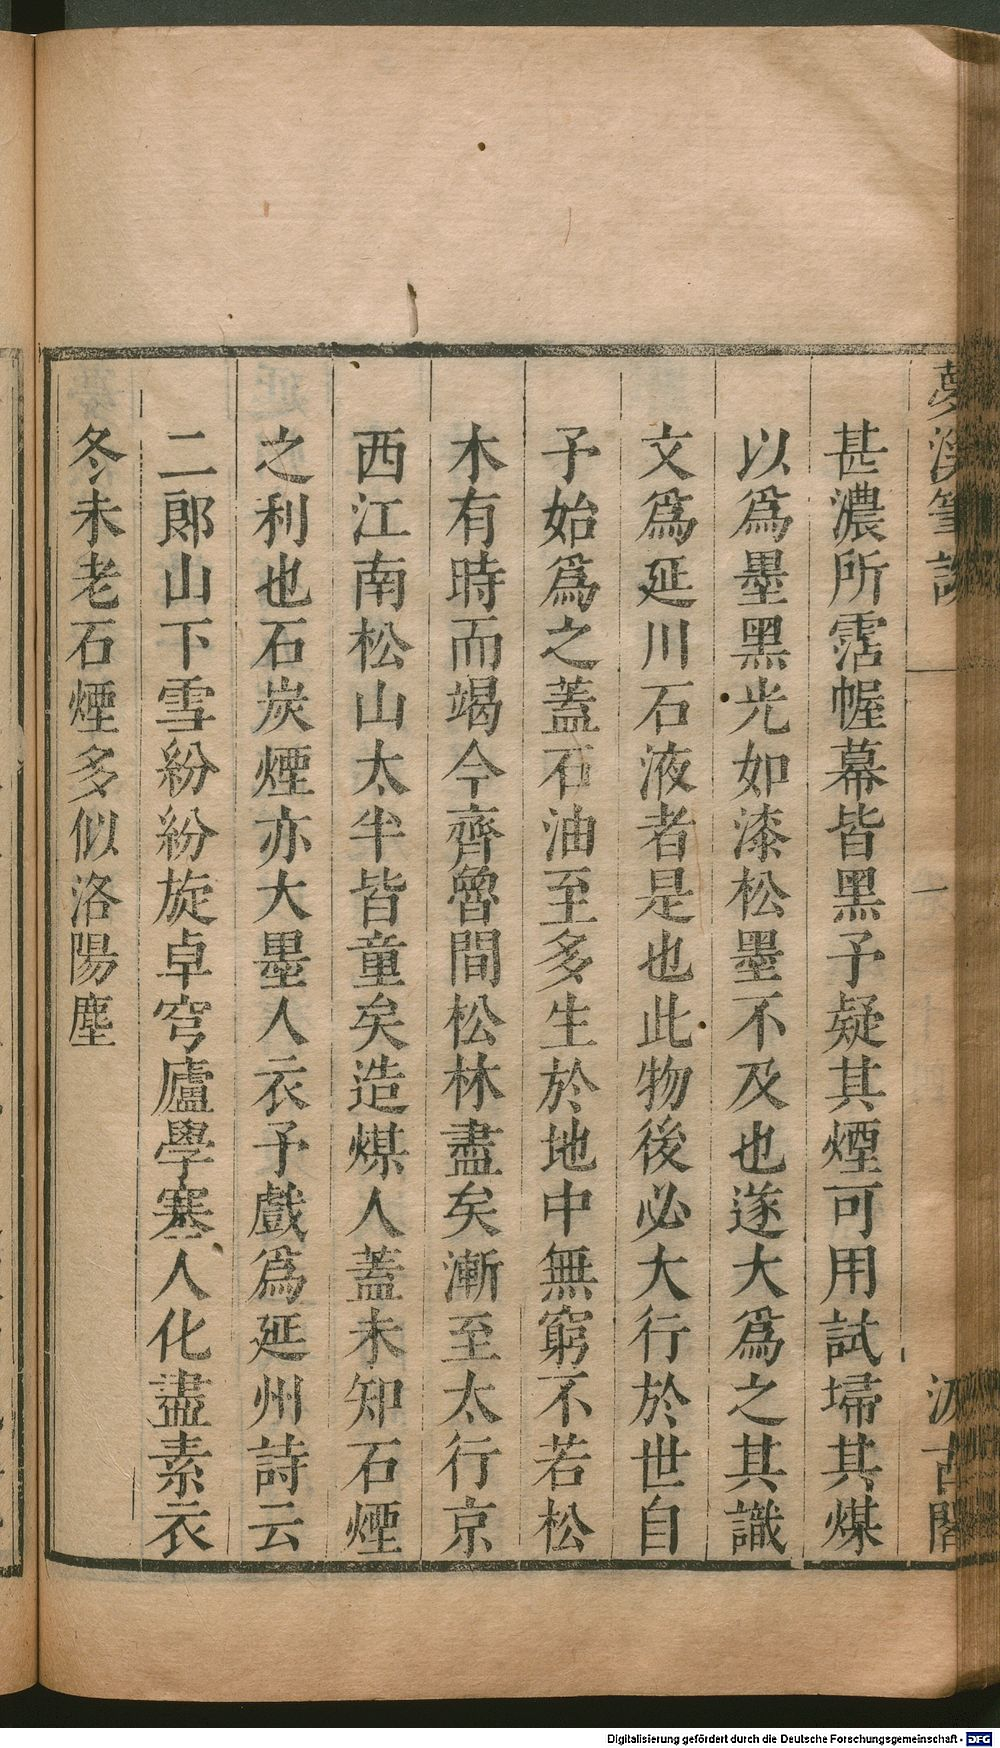 夢溪筆談
一
汲古閣
甚濃所霑幄幕皆黑予疑其煙可用試埽其煤
以爲墨黑光如漆松墨不及也遂大爲之其識
文爲延川石液者是也此物後必大行於世自
予始爲之蓋石油至多生於地中無窮不若松
木有時而竭今齊魯間松林盡矣漸至太行京
西江南松山太半皆童矣造煤人蓋未知石煙
之利也石炭煙亦大墨人衣予戲爲延州詩云
二郎山下雪紛紛旋卓穹廬學塞人化盡素衣
冬未老石煙多似洛陽塵
Digitalisierung gefördert durch die Deutsche Forschungsgemeinschaft - DFG